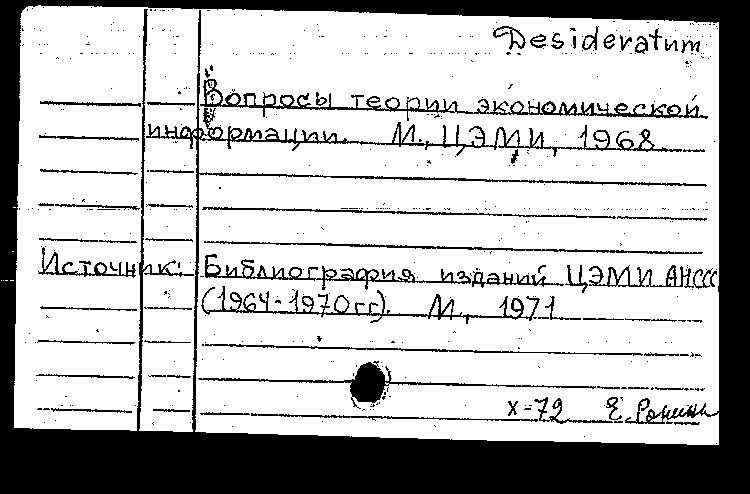 Desideratum
Вопросы теории экономической
информации. М., ЦЭМИ, 1968
Источник: Библиография изданий ЦЭМИ АНССС
(1964-1970гг). М., 1971
X-72 Е.